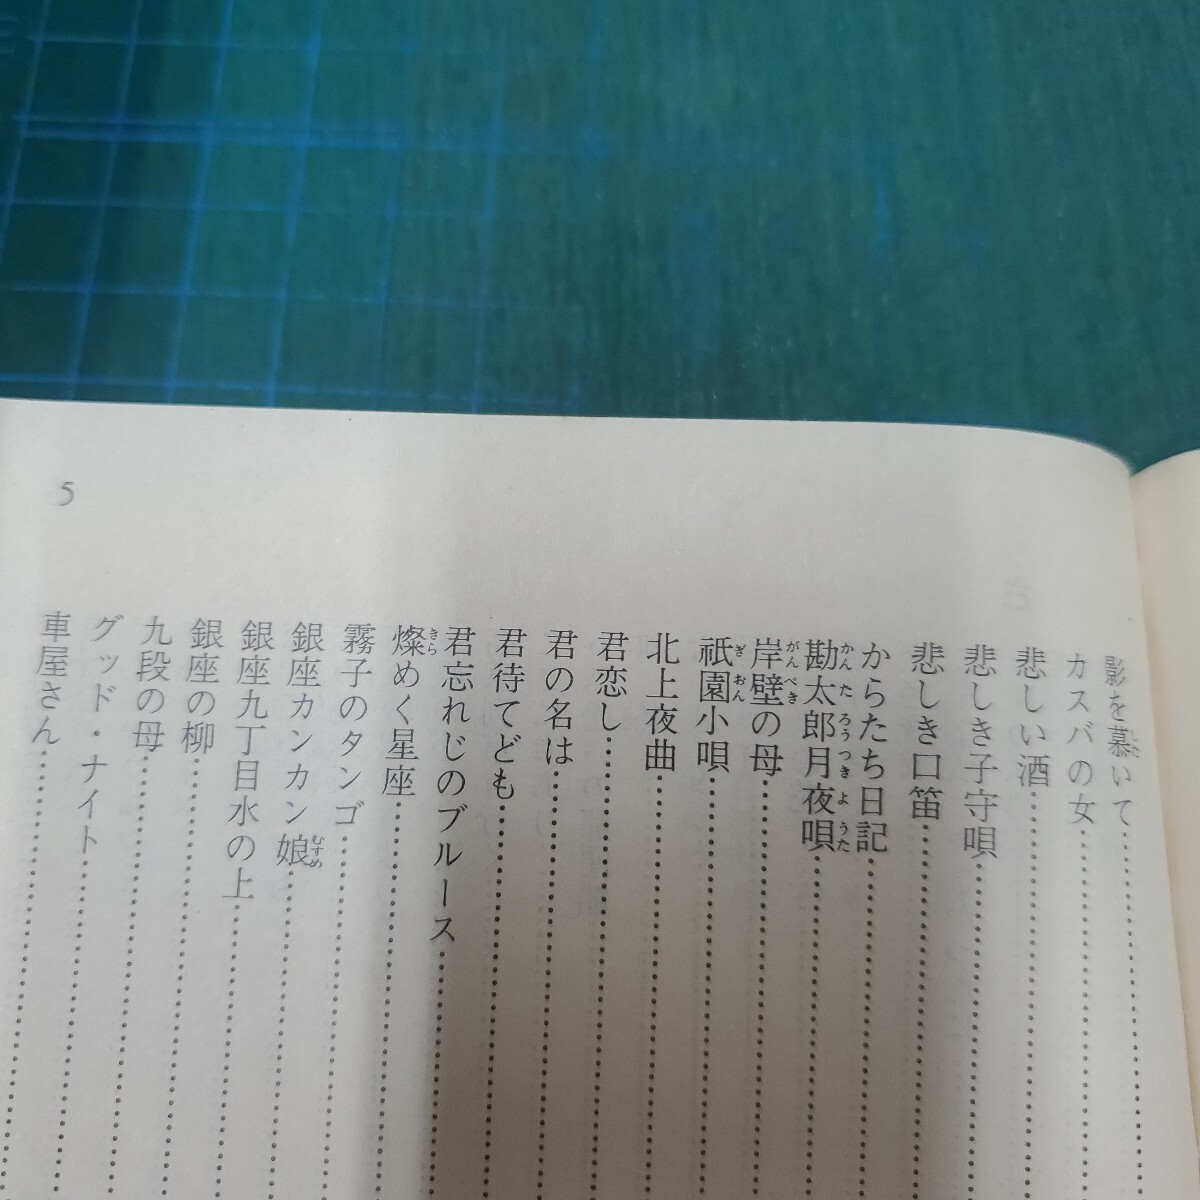 影を慕いて
カスバの女
悲しい酒
悲しき子守唄
悲しき口笛
からたち日記
勘太郎月夜唄
岸壁の母
祇園小唄
北上夜曲
君恋し
君の名は
君待てども
君忘れじのブルース
燦めく星座
霧子のタンゴ
銀座カンカン娘
銀座九丁目水の上
銀座の柳
九段の母
グッド・ナイト
車屋さん
5